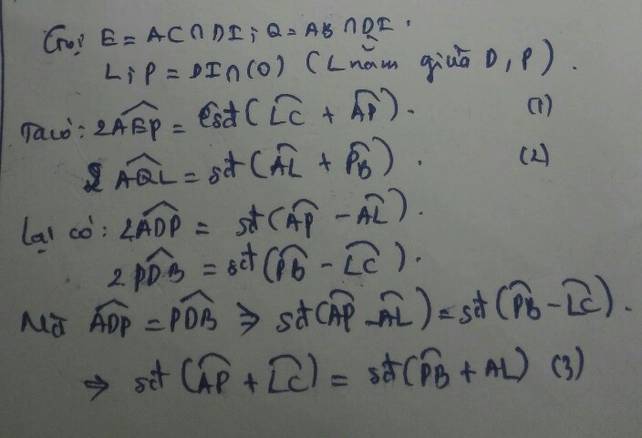 Gọi E = AC ∩ DI ; Q = AB ∩ DI.
L, P = DI ∩ (O) (L nằm giữa D, P).
Ta có: 2\widehat{AEP} = sđ(\overset{\frown}{LC} + \overset{\frown}{AP}). (1)
2\widehat{AQL} = sđ(\overset{\frown}{AL} + \overset{\frown}{PB}). (2)
Lại có: 2\widehat{ADP} = sđ(\overset{\frown}{AP} - \overset{\frown}{AL}).
2\widehat{PDB} = sđ(\overset{\frown}{PB} - \overset{\frown}{LC}).
Mà \widehat{ADP} = \widehat{PDB} ⇒ sđ(\overset{\frown}{AP} - \overset{\frown}{AL}) = sđ(\overset{\frown}{PB} - \overset{\frown}{LC}).
⇒ sđ(\overset{\frown}{AP} + \overset{\frown}{LC}) = sđ(\overset{\frown}{PB} + AL) (3)